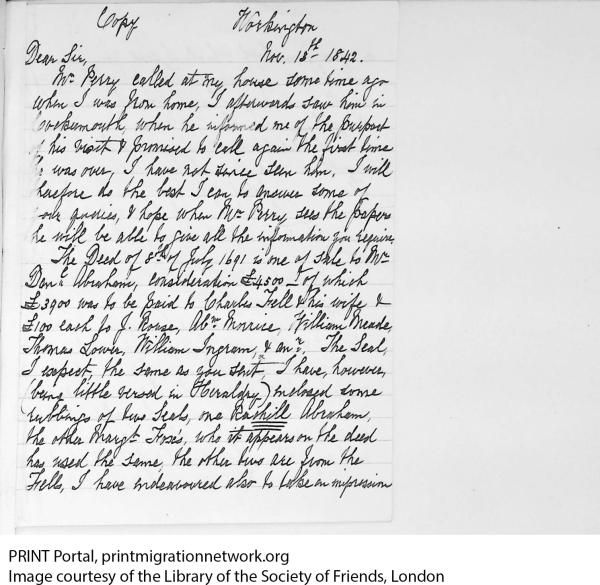 Copy Workington
Nov. 12th 1842.
Dear Sir,
Mr. Perry called at my house some time ago
when I was from home, I afterwards saw him in
Cockermouth, when he informed me of the purport
of his visit & promised to call again the first time
he was over, I have not since seen him. I will
therefore do the best I can to answer some of
your queries, & hope when Mr Perry sees the papers
he will be able to give all the information you require.
The Deed of 8th of July 1691 is one of sale to Mr
Danl. Abraham, consideration £4500 - of which
£3900 was to be paid to Charles Fell & his wife &
£100 each to J. Rouse, Abm. Morrice, William Meade,
Thomas Lower, William Ingram, & anr. The Seal,
I expect, the same as you sent, I have, however,
(being little versed in Heraldry) enclosed some
rubbings of two Seals, one Rashill Abraham,
the other Margt. Fox's, who it appears on the deed
has used the same, the other two are from the
Fells, I have endeavoured also to take an impression
PRINT Portal, printmigrationnetwork.org
Image courtesy of the Library of the Society of Friends, London